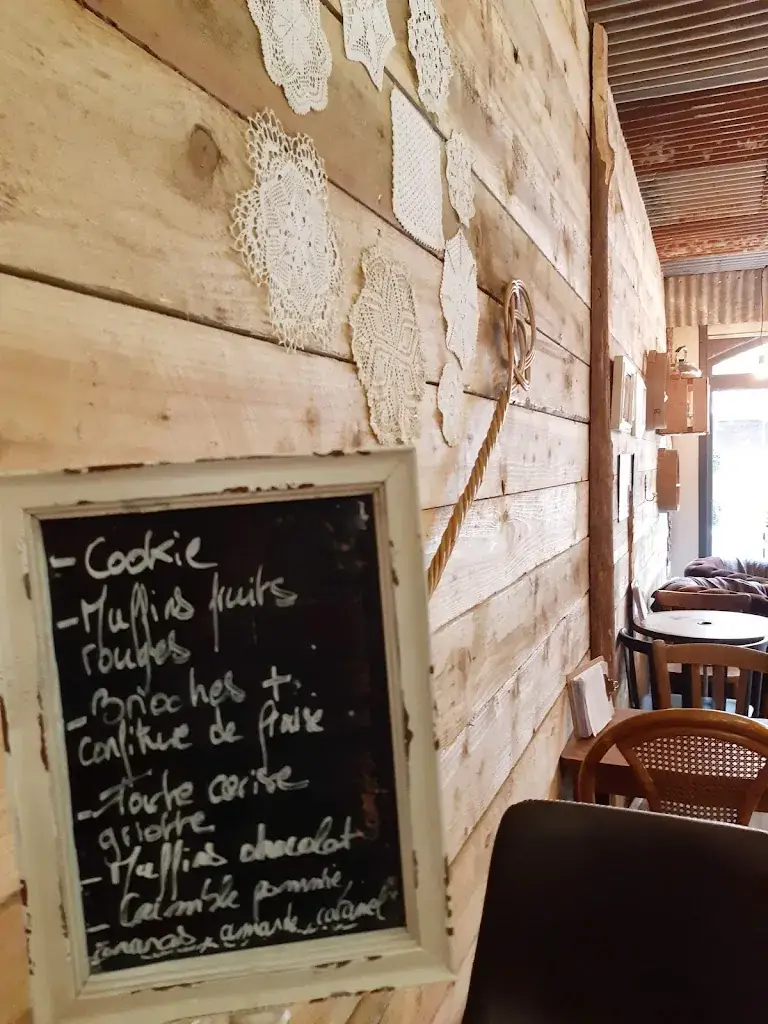 - Cookie
- Muffins fruits
rouges
- Brioches +
confiture de fraise
- Tarte cerise
griotte
- Muffins chocolat
- Crumble pomme,
ananas, amande, caramel